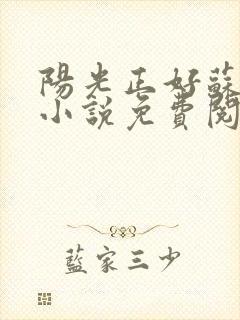 陽光正好蘇
小說免費閱
藍家三少